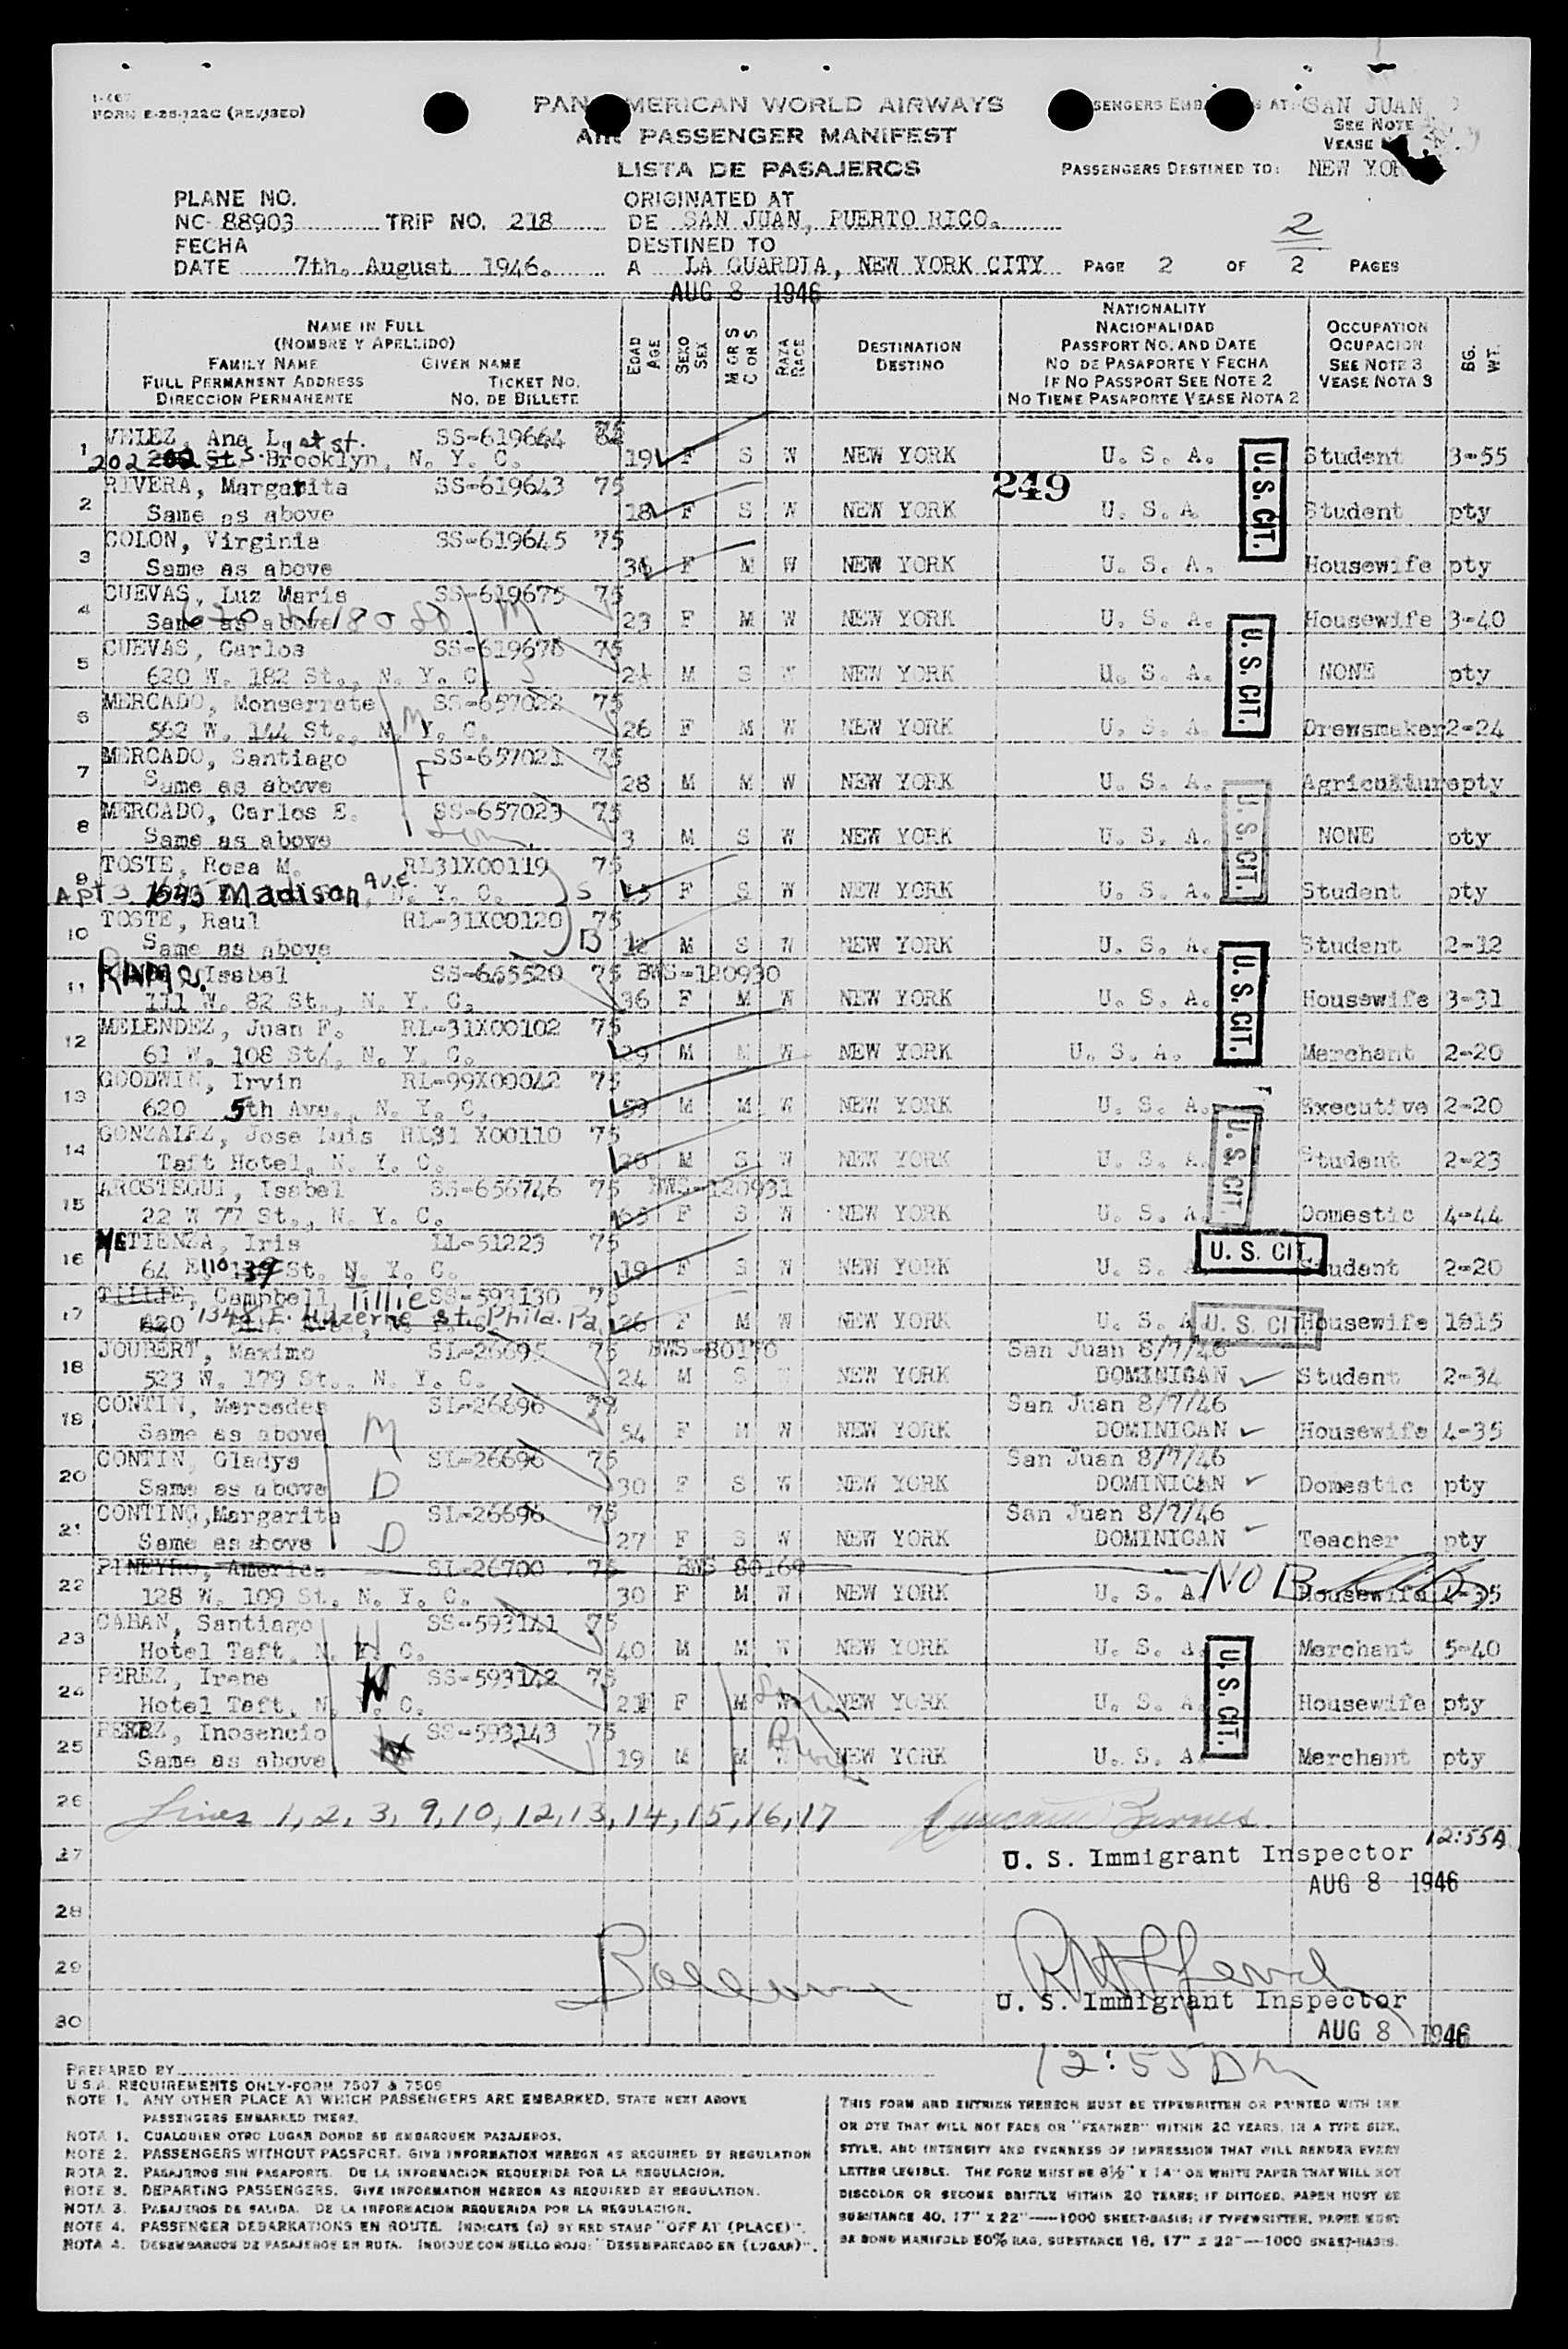 I-467
FORM E-25-722C (REVISED)
PAN AMERICAN WORLD AIRWAYS
AIR PASSENGER MANIFEST
LISTA DE PASAJEROS
PASSENGERS EMBARKED AT: SAN JUAN
SEE NOTE
VEASE
PASSENGERS DESTINED TO: NEW YORK
PLANE NO.
NC- 88903 TRIP NO. 218
FECHA
DATE 7th. August 1946.
ORIGINATED AT
DE SAN JUAN, PUERTO RICO.
DESTINED TO
A LA GUARDIA, NEW YORK CITY
AUG 8 1946
2
PAGE 2 OF 2 PAGES
NAME IN FULL
(NOMBRE Y APELLIDO)
FAMILY NAME GIVEN NAME
FULL PERMANENT ADDRESS TICKET NO.
DIRECCION PERMANENTE NO. DE BILLETE
EDAD AGE
SEXO SEX
M OR S C OR S
RAZA RACE
DESTINATION
DESTINO
NATIONALITY
NACIONALIDAD
PASSPORT NO. AND DATE
NO DE PASAPORTE Y FECHA
IF NO PASSPORT SEE NOTE 2
NO TIENE PASAPORTE VEASE NOTA 2
OCCUPATION
OCUPACION
SEE NOTE 3
VEASE NOTA 3
BG. WT.
1 VELEZ, Ana L. SS-619644 75
202 S. 1st st. Brooklyn, N. Y. C. 19 F S W NEW YORK U. S. A. Student 3-55
249
2 RIVERA, Margarita SS-619643 75
Same as above 18 F S W NEW YORK U. S. A. Student pty
U.S. CIT.
3 COLON, Virginia SS-619645 75
Same as above F M W NEW YORK U. S. A. Housewife pty
4 CUEVAS, Luz Maria SS-619675 75
Same as above M 23 F M W NEW YORK U. S. A. Housewife 3-40
5 CUEVAS, Carlos SS-619676 75
620 W. 182 St., N. Y. C. S M S W NEW YORK U. S. A. NONE pty
U.S. CIT.
6 MERCADO, Monserrate SS-657022 75
562 W. 144 St., N. Y. C. M 26 F M W NEW YORK U. S. A. Drewsmaker 2-24
7 MERCADO, Santiago SS-657021 75
Same as above F 28 M M W NEW YORK U. S. A. Agriculture pty
8 MERCADO, Carlos E. SS-657023 75
Same as above Son 3 M S W NEW YORK U. S. A. NONE pty
U.S. CIT.
9 TOSTE, Rosa M. RL31X00119 75
Apt 3 1643 Madison Ave, N. Y. C. S F S W NEW YORK U. S. A. Student pty
10 TOSTE, Raul RL-31X00120 75
Same as above B 12 M S W NEW YORK U. S. A. Student 2-12
11 RAMOS. Isabel SS-665520 75 BWS-120930
111 W. 82 St., N. Y. C. 36 F M W NEW YORK U. S. A. Housewife 3-31
U.S. CIT.
12 MELENDEZ, Juan F. RL-31X00102 75
61 W. 108 St/, N. Y. C. 29 M M W NEW YORK U. S. A. Merchant 2-20
13 GOODWIN, Irvin RL-99X00042 75
620 5th Ave., N. Y. C. 59 M M W NEW YORK U. S. A. Executive 2-20
14 GONZALEZ, Jose Luis RL31 X00110 75
Taft Hotel, N. Y. C. 20 M S W NEW YORK U. S. A. Student 2-23
U.S. CIT.
15 AROSTEGUI, Isabel SS-656746 75 BWS-120931
22 W 77 St., N. Y. C. F S W NEW YORK U. S. A. Domestic 4-44
16 METIENZA, Iris LL-51223 75
64 E. 110 St. N. Y. C. 19 F S W NEW YORK U. S. A. Student 2-20
U. S. CIT.
17 TILLIE, Campbell, Tillie SS-593130 75
1348 E. Luzerne st. Phila. Pa. 26 F M W NEW YORK U. S. A. Housewife 1015
U. S. CIT.
18 JOUBERT, Maximo SL-26695 75 BWS-80170 San Juan 8/7/46
523 W. 179 St., N. Y. C. 24 M S W NEW YORK DOMINICAN Student 2-34
19 CONTIN, Mercedes SL-26696 75 San Juan 8/7/46
Same as above M 54 F M W NEW YORK DOMINICAN Housewife 4-35
20 CONTIN, Gladys SL-26696 75 San Juan 8/7/46
Same as above D 30 F S W NEW YORK DOMINICAN Domestic pty
21 CONTING, Margarita SL-26696 75 San Juan 8/7/46
Same as above D 27 F S W NEW YORK DOMINICAN Teacher pty
22 PINEYRO, America SL-26700 75 BWS 80169
128 W. 109 St, N. Y. C. 30 F M W NEW YORK U. S. A. Housewife
23 CABAN, Santiago SS-593141 75
Hotel Taft, N. Y. C. 40 M M W NEW YORK U. S. A. Merchant 5-40
24 PEREZ, Irene SS-593142 75
Hotel Taft, N. Y. C. 21 F M W NEW YORK U. S. A. Housewife pty
U.S. CIT.
25 PEREZ, Inosencio SS-593143 75
Same as above 19 M M W NEW YORK U. S. A. Merchant pty
26 Lines 1, 2, 3, 9, 10, 12, 13, 14, 15, 16, 17 Barnes
27 U. S. Immigrant Inspector 12:55A
AUG 8 1946
28
29
30 U. S. Immigrant Inspector
AUG 8 1946
PREPARED BY
U S A. REQUIREMENTS ONLY-FORM 7507 & 7509
NOTE 1. ANY OTHER PLACE AT WHICH PASSENGERS ARE EMBARKED, STATE NEXT ABOVE
PASSENGERS EMBARKED THERE.
NOTA 1. CUALQUIER OTRO LUGAR DONDE SE EMBARQUEN PASAJEROS.
NOTE 2. PASSENGERS WITHOUT PASSPORT. GIVE INFORMATION HEREON AS REQUIRED BY REGULATION
NOTA 2. PASAJEROS SIN PASAPORTE. DE LA INFORMACION REQUERIDA POR LA REGULACION.
NOTE 3. DEPARTING PASSENGERS. GIVE INFORMATION HEREON AS REQUIRED BY REGULATION.
NOTA 3. PASAJEROS DE SALIDA. DE LA INFORMACION REQUERIDA POR LA REGULACION.
NOTE 4. PASSENGER DEBARKATIONS EN ROUTE. INDICATE (A) BY RED STAMP "OFF AT (PLACE)".
NOTA 4. DESEMBARCOS DE PASAJEROS EN RUTA. INDIQUE CON SELLO ROJO: "DESEMBARCADO EN (LUGAR)".
THIS FORM AND ENTRIES THEREON MUST BE TYPEWRITTEN OR PRINTED WITH INK
OR DYE THAT WILL NOT FADE OR "FEATHER" WITHIN 20 YEARS, IN A TYPE SIZE,
STYLE, AND INTENSITY AND EVENNESS OF IMPRESSION THAT WILL RENDER EVERY
LETTER LEGIBLE. THE FORM MUST BE 8½" X 14" ON WHITE PAPER THAT WILL NOT
DISCOLOR OR BECOME BRITTLE WITHIN 20 YEARS; IF DITTOED, PAPER MUST BE
SUBSTANCE 40, 17" X 22"—1000 SHEET-BASIS; IF TYPEWRITTEN, PAPER MUST
BE BOND MANIFOLD 50% RAG, SUBSTANCE 16, 17" X 22"—1000 SHEET-BASIS.